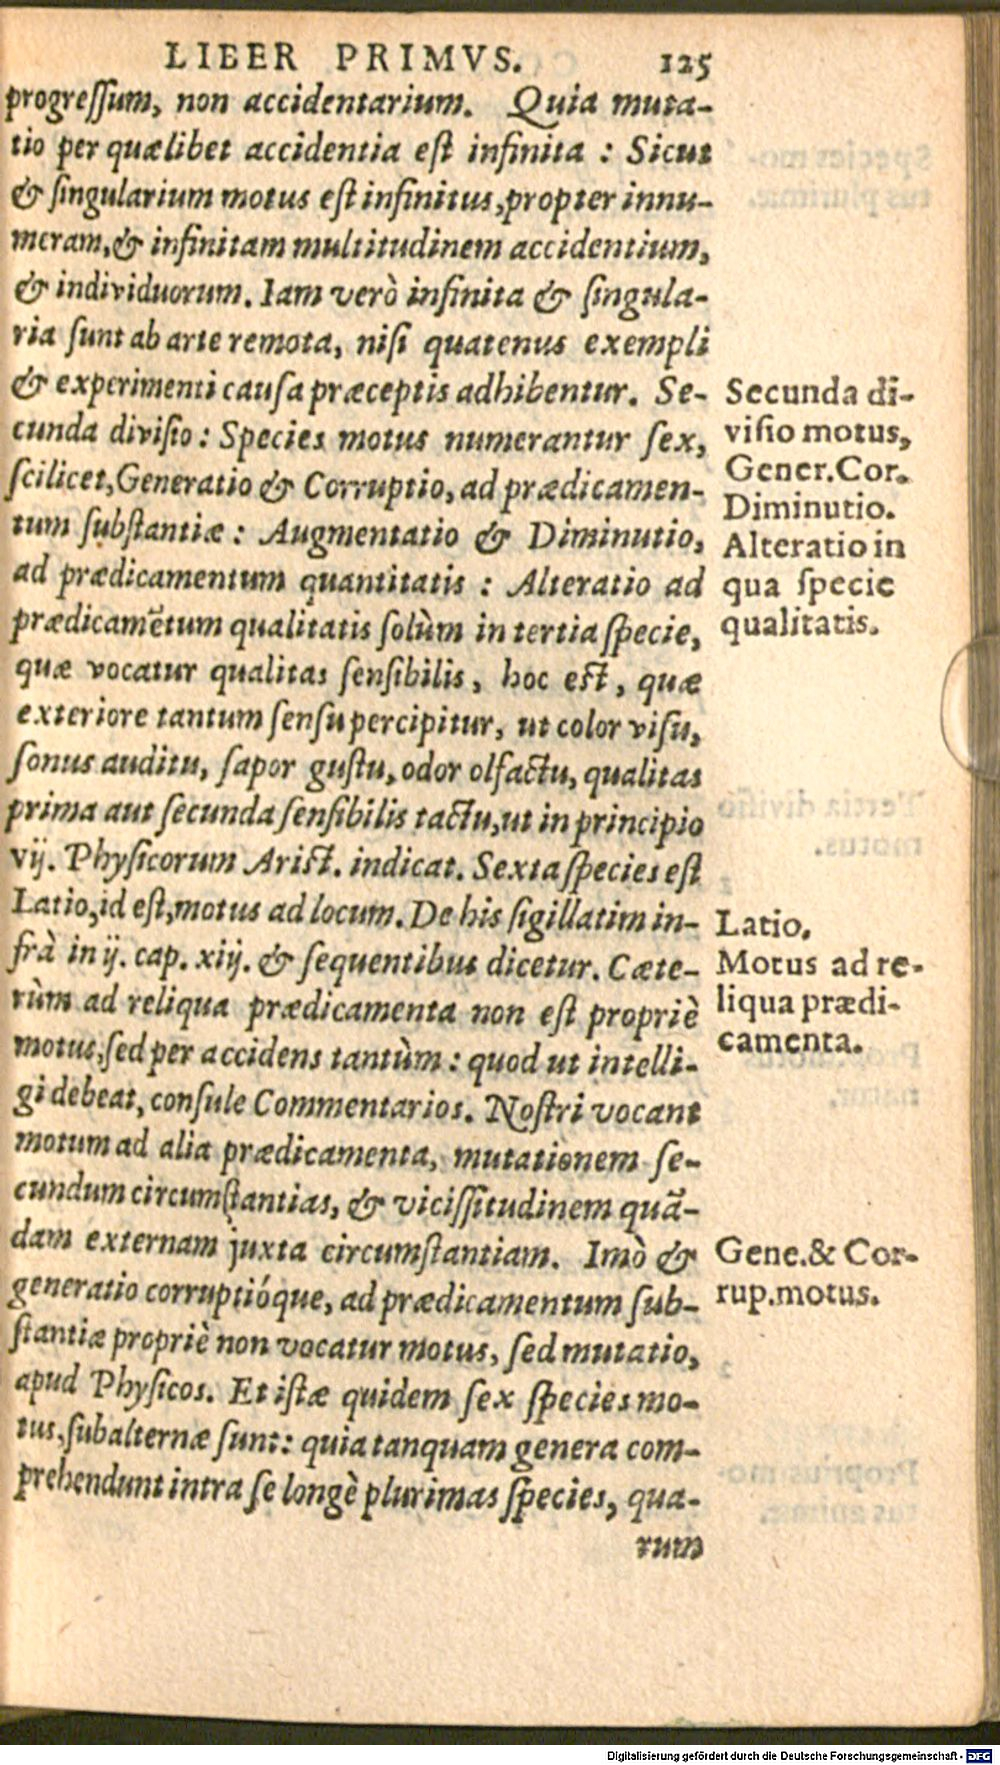 LIBER PRIMVS. 125
progreſſum, non accidentarium. Quia muta-
tio per quælibet accidentia eſt infinita : Sicut
& ſingularium motus eſt infinitus, propter innu-
meram, & infinitam multitudinem accidentium,
& individuorum. Iam verò infinita & ſingula-
ria ſunt ab arte remota, niſi quatenus exempli
& experimenti cauſa præceptis adhibentur. Se-
cunda diviſio : Species motus numerantur ſex,
ſcilicet, Generatio & Corruptio, ad prædicamen-
tum ſubſtantiæ : Augmentatio & Diminutio,
ad prædicamentum quantitatis : Alteratio ad
prædicamẽtum qualitatis ſolùm in tertia ſpecie,
quæ vocatur qualitas ſenſibilis, hoc eſt, quæ
exteriore tantum ſenſu percipitur, ut color viſu,
ſonus auditu, ſapor guſtu, odor olfactu, qualitas
prima aut ſecunda ſenſibilis tactu, ut in principio
vij. Phyſicorum Ariſt. indicat. Sexta ſpecies eſt
Latio, id eſt, motus ad locum. De his ſigillatim in-
frà in ij. cap. xiij. & ſequentibus dicetur. Cæte-
rùm ad reliqua prædicamenta non eſt propriè
motus, ſed per accidens tantùm : quod ut intelli-
gi debeat, conſule Commentarios. Noſtri vocant
motum ad alia prædicamenta, mutationem ſe-
cundum circumſtantias, & viciſſitudinem quã-
dam externam juxta circumſtantiam. Imò &
generatio corruptióque, ad prædicamentum ſub-
ſtantiæ propriè non vocatur motus, ſed mutatio,
apud Phyſicos. Et iſtæ quidem ſex ſpecies mo-
tus, ſubalternæ ſunt : quia tanquam genera com-
prehendunt intra ſe longè plurimas ſpecies, qua-
rum
Secunda di-
viſio motus,
Gener. Cor.
Diminutio.
Alteratio in
qua ſpecie
qualitatis.
Latio.
Motus ad re-
liqua prædi-
camenta.
Gene. & Cor-
rup. motus.
Digitalisierung gefördert durch die Deutsche Forschungsgemeinschaft - DFG